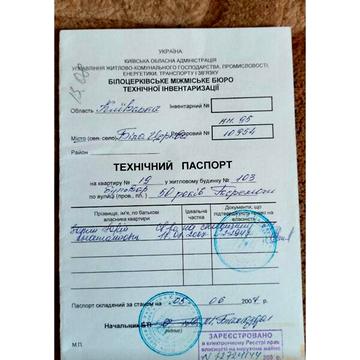 УКРАЇНА
КИЇВСЬКА ОБЛАСНА АДМІНІСТРАЦІЯ
УПРАВЛІННЯ ЖИТЛОВО-КОМУНАЛЬНОГО ГОСПОДАРСТВА, ПРОМИСЛОВОСТІ,
ЕНЕРГЕТИКИ, ТРАНСПОРТУ І ЗВ'ЯЗКУ
БІЛОЦЕРКІВСЬКЕ МІЖМІСЬКЕ БЮРО
ТЕХНІЧНОЇ ІНВЕНТАРИЗАЦІЇ
Область Київська Інвентарний №
Місто (сел. село) Біла Церква Реєстровий № 10954
Район
ТЕХНІЧНИЙ ПАСПОРТ
на квартиру № 19 у житловому будинку № 103
по вулиці (пров., пл.) бульвар 50 років Перемоги
Прізвище, ім'я, по батькові власника квартири
Ідеальна частка
Документи, що підтверджують право власності
Паспорт складений за станом на 05 06 2007 р.
Начальник БТІ
М.П.
ЗАРЕЄСТРОВАНО
в електронному Реєстрі прав
власності на нерухоме майно